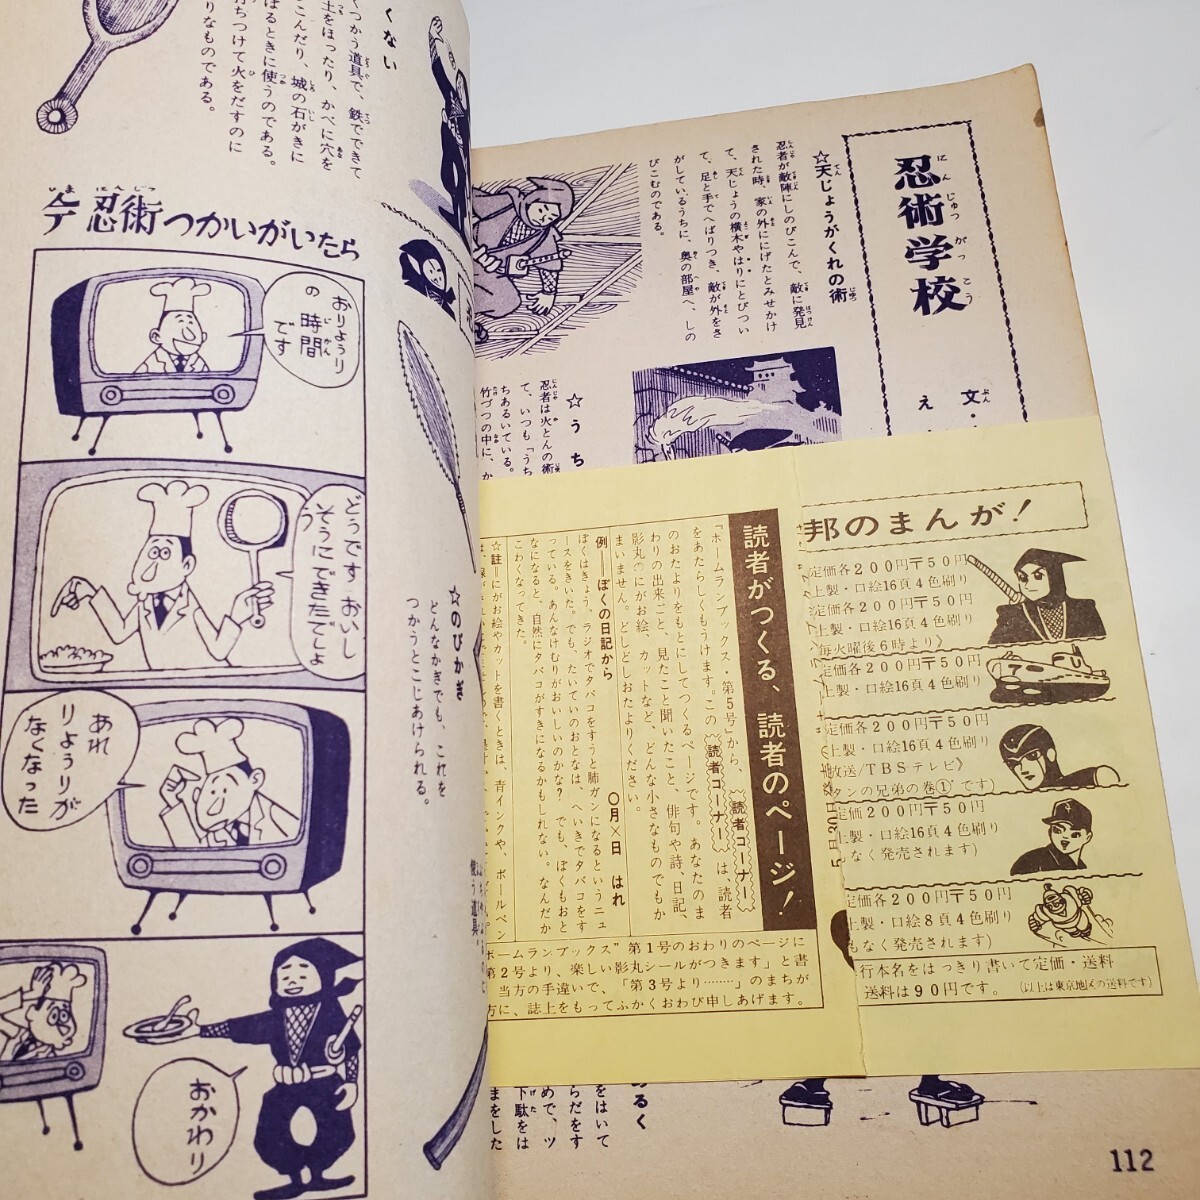 忍術学校
にんじゅつがっこう
文・
え・
☆天じょうがくれの術
忍者が敵陣にしのびこんで、敵に発見
された時、家の外ににげたとみせかけ
て、天じょうの横木やはりにとびつい
て、足と手でへばりつき、敵が外をさ
がしているうちに、奥の部屋へ、しの
びこむのである。
☆うち
忍者は火とんの術
て、いつも「うち
ちあるいている。
竹づつの中に、か
くない
くつかう道具で、鉄でできて
土をほったり、かべに穴を
こんだり、城の石がきに
ぼるときに使うのである。
打ちつけて火をだすのに
りなものである。
今忍術つかいがいたら
いま にんじつ
おりょうり
の時間
です
どうです おいし
そうにできたでしょ
う
あれ
りょうりが
なくなった
おかわり
☆のびかぎ
どんなかぎでも、これを
つかうとこじあけられる。
使う道具。
読者がつくる、読者のページ!
「ホームランブックス・第5号」から、
をあたらしくもうけます。この 読者コーナー は、読者
読者コーナー
のおたよりをもとにしてつくるページです。あなたのま
わりの出来ごと、見たこと聞いたこと、俳句や詩、日記、
影丸のにがお絵、カットなど、どんな小さなものでもか
まいません。どしどしおたよりください。
例―ぼくの日記から 〇月×日 はれ
ぼくはきょう、ラジオでタバコをすうと肺ガンになるというニュ
ースをきいた。でも、たいていのおとなは、へいきでタバコをす
っている。あんなけむりがおいしいのかな? でも、ぼくもおと
なになると、自然にタバコがすきになるかもしれない。なんだか
こわくなってきた。
☆註=にがお絵やカットを書くときは、青インクや、ボールペン
ホームランブックス”第1号のおわりのページに
第2号より、楽しい影丸シールがつきます」と書
当方の手違いで、「第3号より……」のまちが
方に、誌上をもってふかくおわび申しあげます。
邦のまんが!
定価各200円〒50円
上製・口絵16頁4色刷り
定価各200円〒50円
上製・口絵16頁4色刷り
毎火曜後6時より》
定価各200円〒50円
上製・口絵16頁4色刷り
定価各200円〒50円
上製・口絵16頁4色刷り
放送/TBSテレビ》
タンの兄弟の巻①です)
定価200円〒50円
上製・口絵16頁4色刷り
もなく発売されます)
定価各200円〒50円
上製・口絵8頁4色刷り
もなく発売されます)
行本名をはっきり書いて定価・送料
送料は90円です。(以上は東京地区の送料です)
るく
をはいて
らだをす
めで、ツ
下駄をは
まをした
112